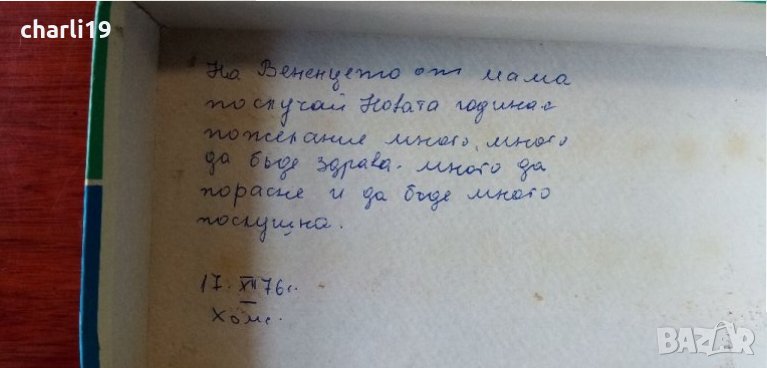 charli19
На Вененцето от мама
по случай Новата година с
пожелание много, много
да бъде здрава. много да
порасне и да бъде много
послушна.
17. XII 76г.
Хомс.
BAZAR